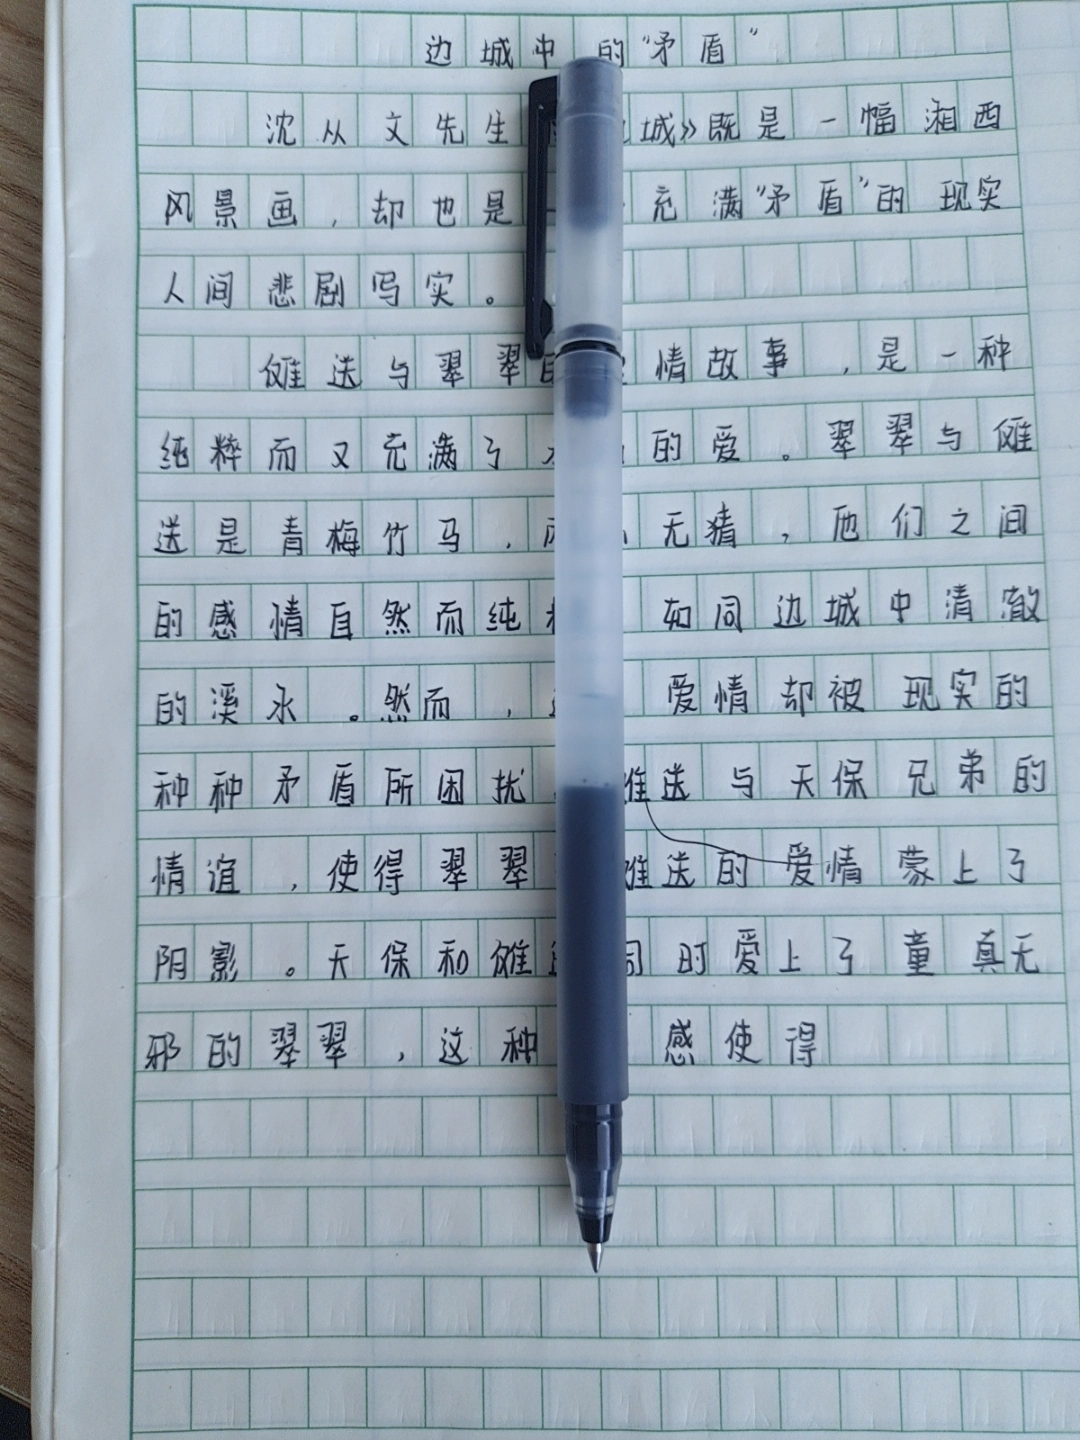 边城中的“矛盾”
沈从文先生 城》既是一幅湘西
风景画，却也是 充满“矛盾”的现实
人间悲剧写实。
傩送与翠翠 情故事，是一种
纯粹而又充满了 的爱。翠翠与傩
送是青梅竹马， 无猜，他们之间
的感情自然而纯 如同边城中清澈
的溪水。然而， 爱情却被现实的
种种矛盾所困扰 送与天保兄弟的
情谊，使得翠翠 送的爱情蒙上了
阴影。天保和傩 同时爱上了童真无
邪的翠翠，这种 感使得